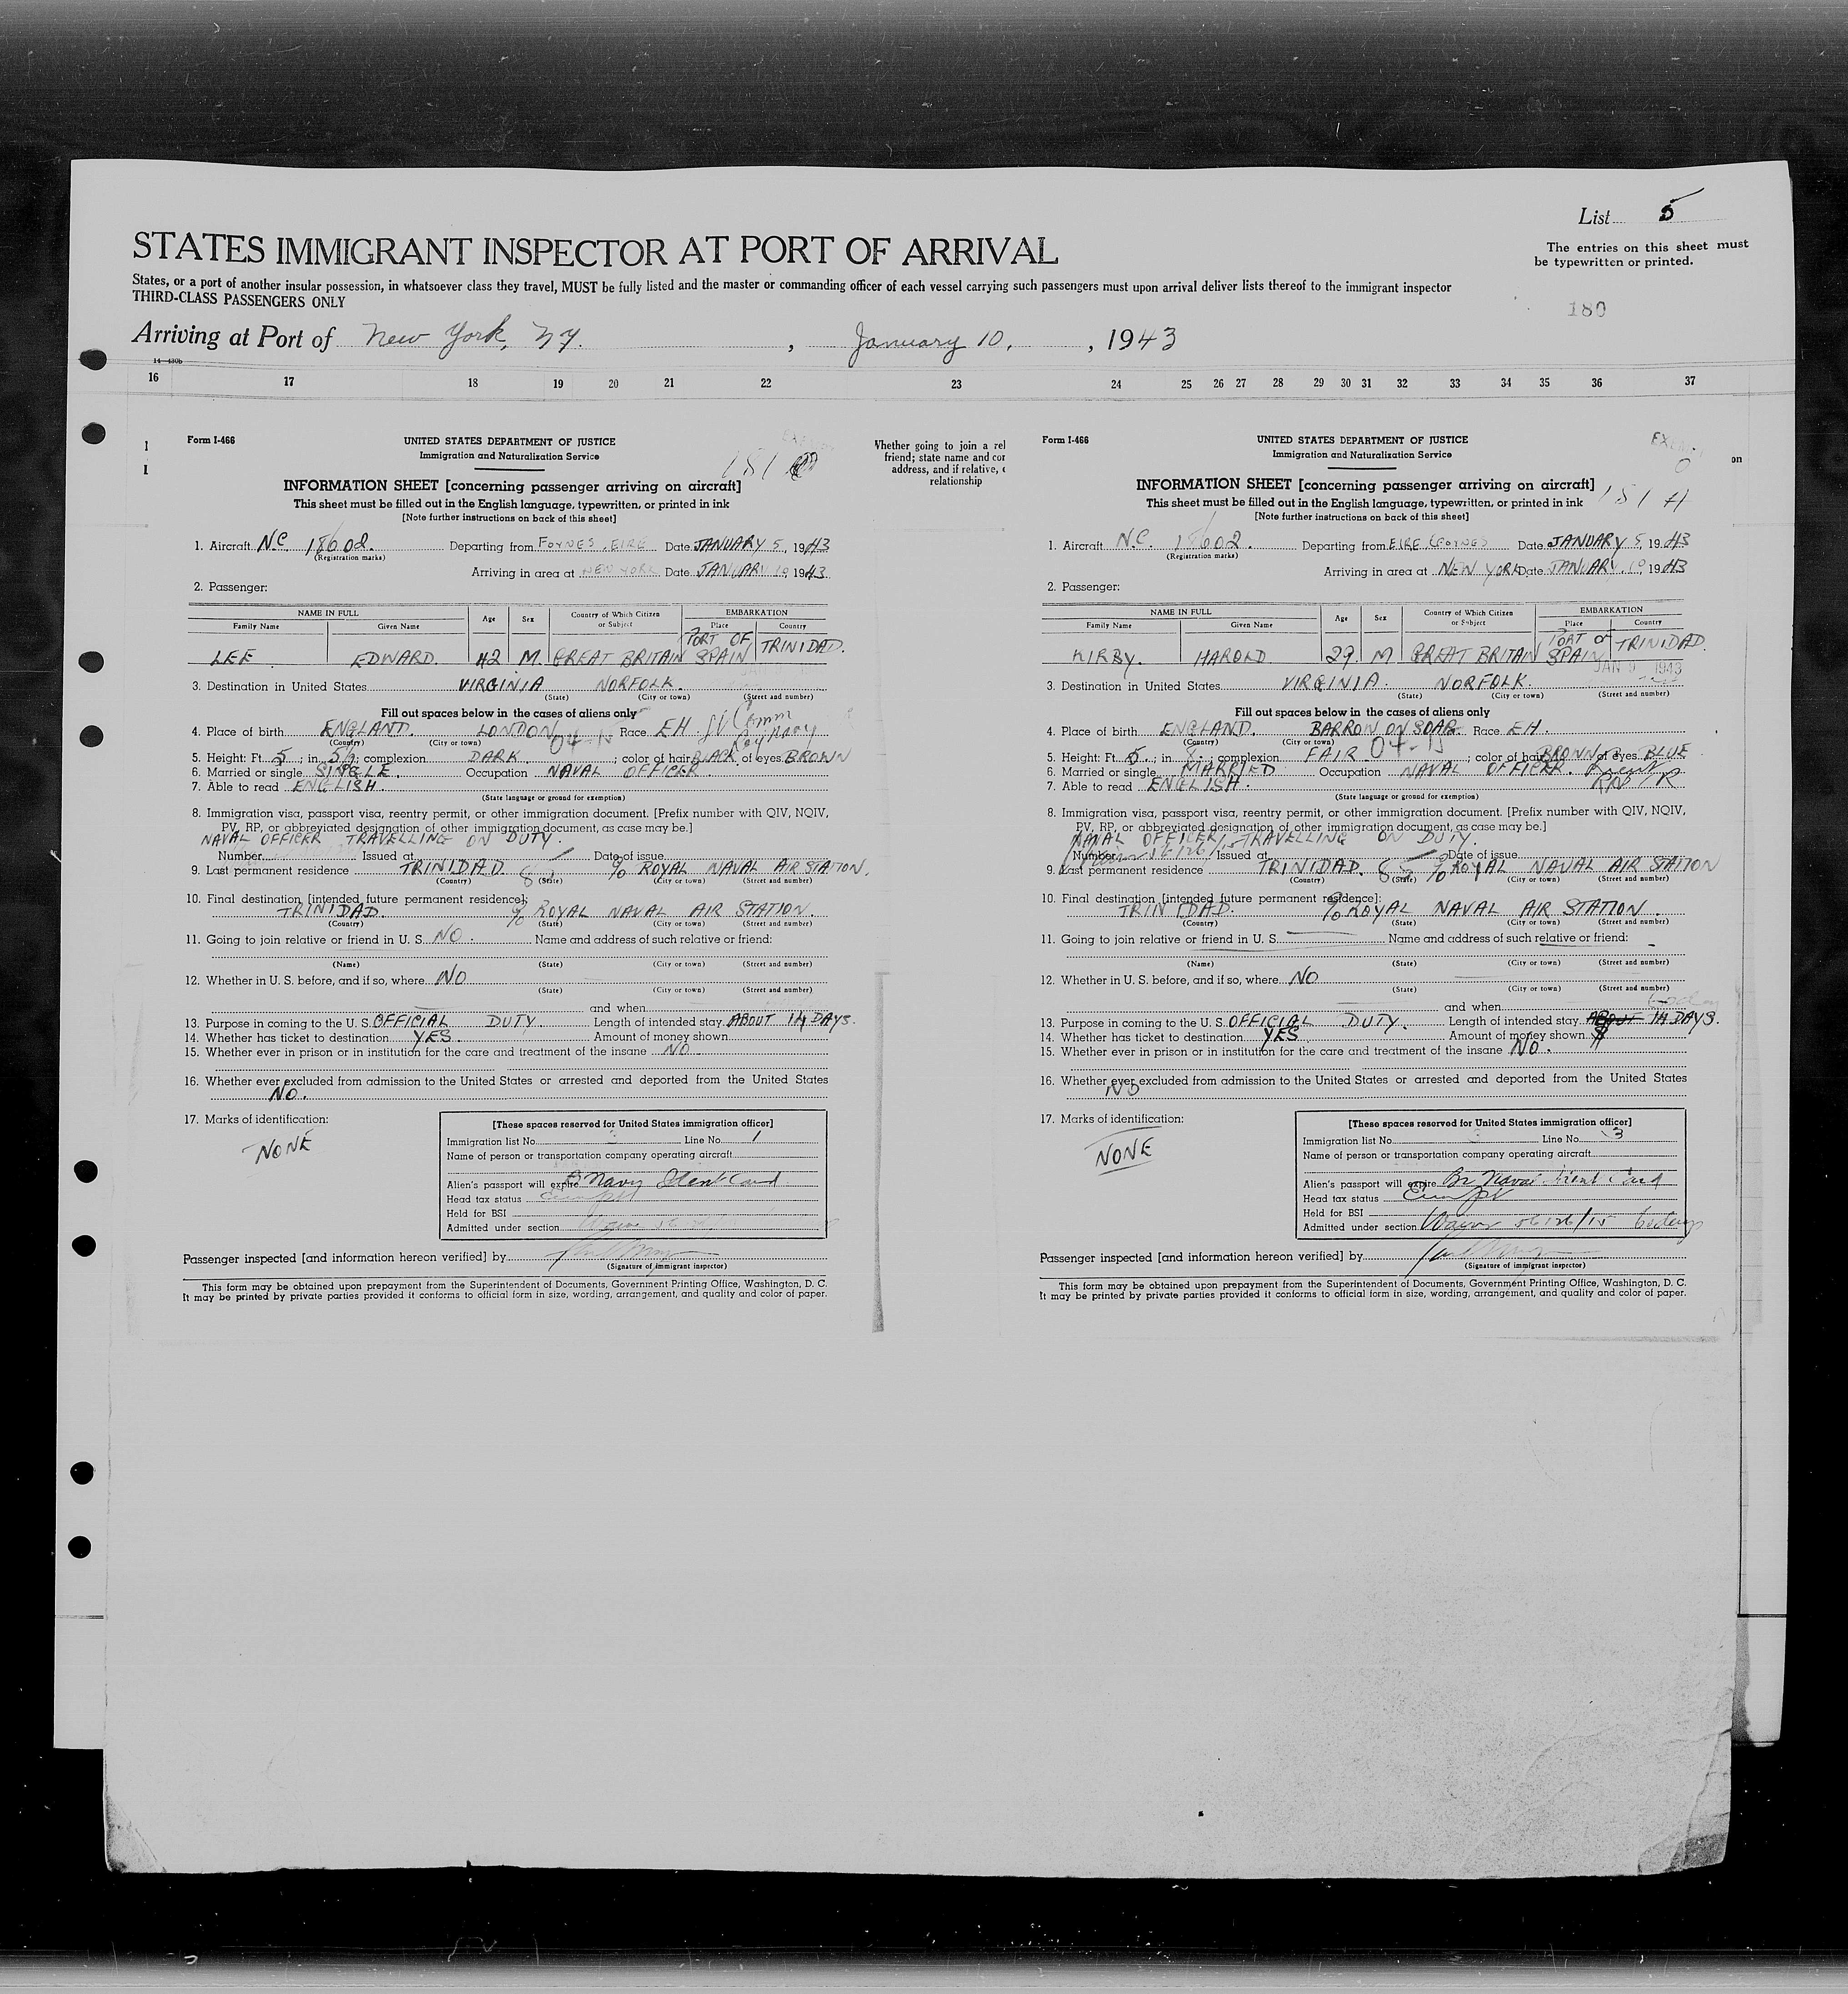 List 5
STATES IMMIGRANT INSPECTOR AT PORT OF ARRIVAL
The entries on this sheet must
be typewritten or printed.
States, or a port of another insular possession, in whatsoever class they travel, MUST be fully listed and the master or commanding officer of each vessel carrying such passengers must upon arrival deliver lists thereof to the immigrant inspector
THIRD-CLASS PASSENGERS ONLY
180
Arriving at Port of New York, NY. , January 10, , 1943
16 17 18 19 20 21 22 23 24 25 26 27 28 29 30 31 32 33 34 35 36 37
Form I-466
UNITED STATES DEPARTMENT OF JUSTICE
Immigration and Naturalization Service
181
INFORMATION SHEET [concerning passenger arriving on aircraft]
This sheet must be filled out in the English language, typewritten, or printed in ink
[Note further instructions on back of this sheet]
1. Aircraft N.C. 18602. Departing from FOYNES, EIRE Date JANUARY 5, 1943
(Registration marks)
Arriving in area at NEW YORK Date JANUARY 10 1943
2. Passenger:
NAME IN FULL Age Sex Country of Which Citizen or Subject EMBARKATION
Family Name Given Name Place Country
LEE EDWARD. 42 M. GREAT BRITAIN PORT OF SPAIN TRINIDAD.
3. Destination in United States VIRGINIA NORFOLK.
(State) (City or town) (Street and number)
Fill out spaces below in the cases of aliens only
4. Place of birth ENGLAND. LONDON Race EH.
(Country) (City or town)
5. Height: Ft. 5 ; in. 5½; complexion DARK ; color of hair BLACK of eyes BROWN
6. Married or single SINGLE. Occupation NAVAL OFFICER.
7. Able to read ENGLISH.
(State language or ground for exemption)
8. Immigration visa, passport visa, reentry permit, or other immigration document. [Prefix number with QIV, NQIV,
PV, RP, or abbreviated designation of other immigration document, as case may be.]
NAVAL OFFICER TRAVELLING ON DUTY.
Number Issued at Date of issue
9. Last permanent residence TRINIDAD. % ROYAL NAVAL AIR STATION.
(Country) (State) (City or town) (Street and number)
10. Final destination [intended future permanent residence]:
TRINIDAD. % ROYAL NAVAL AIR STATION.
(Country) (State) (City or town) (Street and number)
11. Going to join relative or friend in U. S. NO. Name and address of such relative or friend:
(Name) (State) (City or town) (Street and number)
12. Whether in U. S. before, and if so, where NO
(State) (City or town) (Street and number)
and when
13. Purpose in coming to the U. S. OFFICIAL DUTY. Length of intended stay ABOUT 14 DAYS.
14. Whether has ticket to destination YES. Amount of money shown
15. Whether ever in prison or in institution for the care and treatment of the insane NO.
16. Whether ever excluded from admission to the United States or arrested and deported from the United States
NO.
17. Marks of identification:
NONE
[These spaces reserved for United States immigration officer]
Immigration list No. 3 Line No. 1
Name of person or transportation company operating aircraft
Alien's passport will expire B Navy Ident Card
Head tax status Exempt
Held for BSI
Admitted under section
Passenger inspected [and information hereon verified] by
(Signature of immigrant inspector)
This form may be obtained upon prepayment from the Superintendent of Documents, Government Printing Office, Washington, D. C.
It may be printed by private parties provided it conforms to official form in size, wording, arrangement, and quality and color of paper.
Whether going to join a rel
friend; state name and cor
address, and if relative,
relationship
on
Form I-466
UNITED STATES DEPARTMENT OF JUSTICE
Immigration and Naturalization Service
181 A
INFORMATION SHEET [concerning passenger arriving on aircraft]
This sheet must be filled out in the English language, typewritten, or printed in ink
[Note further instructions on back of this sheet]
1. Aircraft N.C. 18602. Departing from EIRE, FOYNES Date JANUARY 5, 1943
(Registration marks)
Arriving in area at NEW YORK Date JANUARY 10, 1943
2. Passenger:
NAME IN FULL Age Sex Country of Which Citizen or Subject EMBARKATION
Family Name Given Name Place Country
KIRBY. HAROLD 29. M GREAT BRITAIN PORT OF SPAIN TRINIDAD.
JAN 9 1943
3. Destination in United States VIRGINIA. NORFOLK.
(State) (City or town) (Street and number)
Fill out spaces below in the cases of aliens only
4. Place of birth ENGLAND. BARROW ON SOAR. Race EH.
(Country) (City or town)
5. Height: Ft. 5 ; in. ; complexion FAIR ; color of hair BROWN of eyes BLUE
6. Married or single MARRIED Occupation NAVAL OFFICER.
7. Able to read ENGLISH.
(State language or ground for exemption)
8. Immigration visa, passport visa, reentry permit, or other immigration document. [Prefix number with QIV, NQIV,
PV, RP, or abbreviated designation of other immigration document, as case may be.]
NAVAL OFFICER, TRAVELLING ON DUTY.
Number Issued at Date of issue
9. Last permanent residence TRINIDAD. % ROYAL NAVAL AIR STATION
(Country) (State) (City or town) (Street and number)
10. Final destination [intended future permanent residence]:
TRINIDAD. % ROYAL NAVAL AIR STATION.
(Country) (State) (City or town) (Street and number)
11. Going to join relative or friend in U. S. Name and address of such relative or friend:
(Name) (State) (City or town) (Street and number)
12. Whether in U. S. before, and if so, where NO
(State) (City or town) (Street and number)
and when
13. Purpose in coming to the U. S. OFFICIAL DUTY. Length of intended stay ABOUT 14 DAYS.
14. Whether has ticket to destination YES Amount of money shown
15. Whether ever in prison or in institution for the care and treatment of the insane NO.
16. Whether ever excluded from admission to the United States or arrested and deported from the United States
NO
17. Marks of identification:
NONE
[These spaces reserved for United States immigration officer]
Immigration list No. 3 Line No. 3
Name of person or transportation company operating aircraft
Alien's passport will expire Br Naval Ident Card
Head tax status Exempt
Held for BSI
Admitted under section Waiver 56126/15 60 days
Passenger inspected [and information hereon verified] by
(Signature of immigrant inspector)
This form may be obtained upon prepayment from the Superintendent of Documents, Government Printing Office, Washington, D. C.
It may be printed by private parties provided it conforms to official form in size, wording, arrangement, and quality and color of paper.